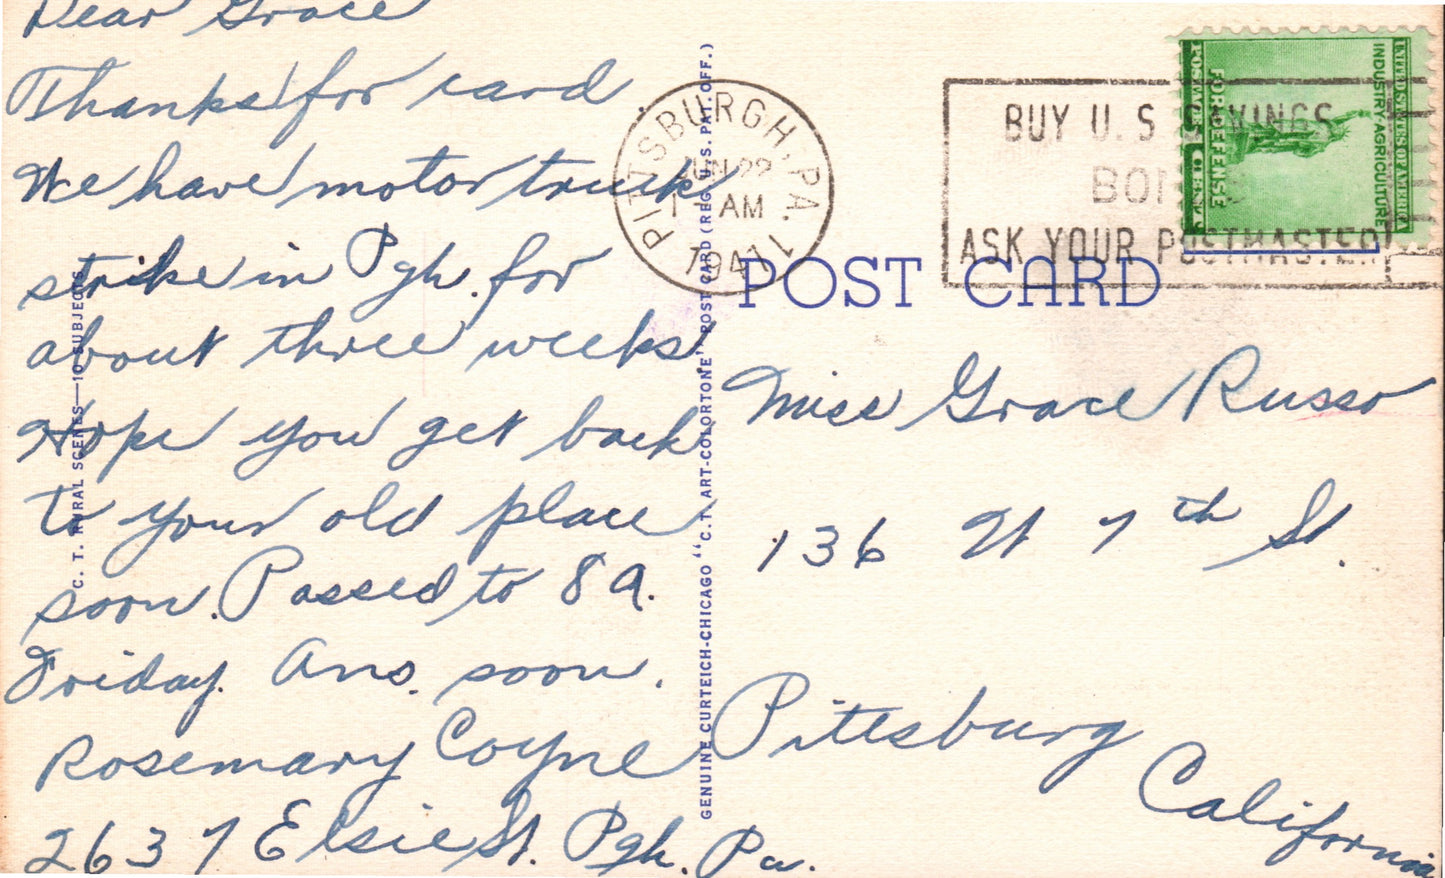 Dear Grace
Thanks for card.
We have motor truck
strike in Pgh. for
about three weeks.
Hope you get back
to your old place
soon. Passed to 8A.
Friday. Ans. soon.
Rosemary Coyne
2637 Elsie St. Pgh. Pa.
C. T. RURAL SCENES—10 SUBJECTS
GENUINE CURTEICH-CHICAGO "C.T. ART-COLORTONE" POST CARD (REG. U.S. PAT. OFF.)
PITTSBURGH, PA.
JUN 22
AM
1941
BUY U.S. SAVINGS
BONDS
ASK YOUR POSTMASTER
UNITED STATES OF AMERICA
INDUSTRY AGRICULTURE
FOR DEFENSE
POSTAGE 1 CENT
POST CARD
Miss Grace Russo
136 W 7th St.
Pittsburg
California